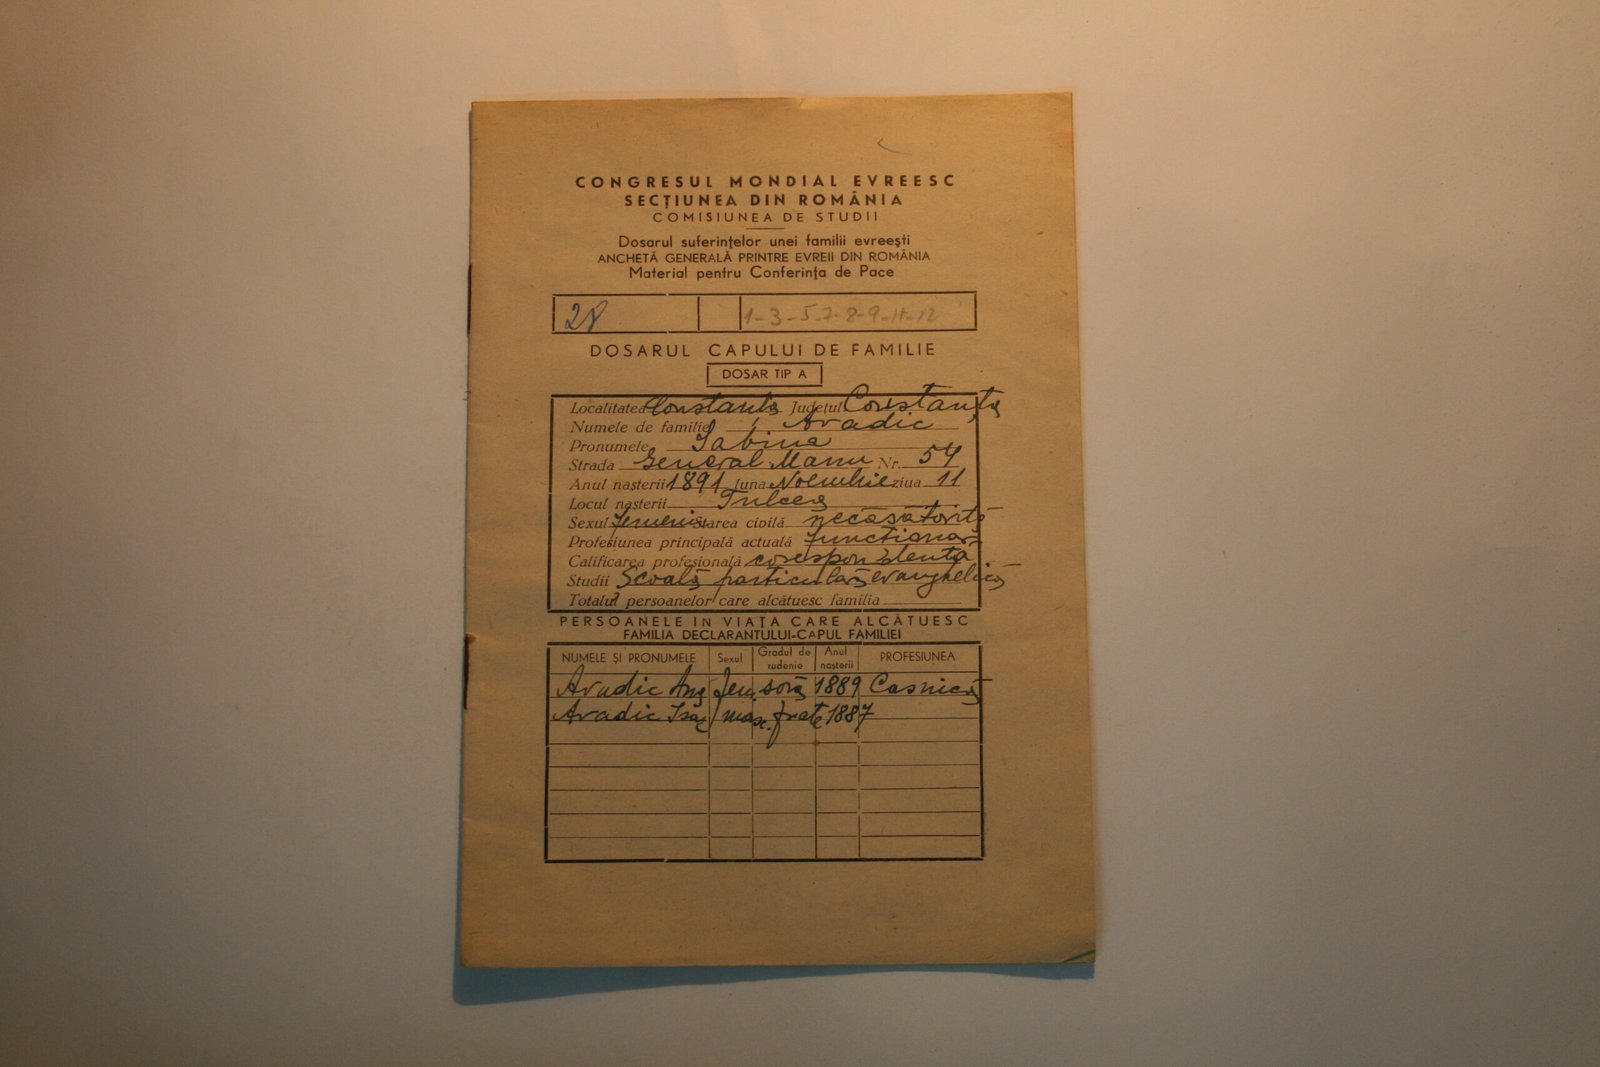 CONGRESUL MONDIAL EVREESC
SECȚIUNEA DIN ROMÂNIA
COMISIUNEA DE STUDII
Dosarul suferințelor unei familii evreești
ANCHETĂ GENERALĂ PRINTRE EVREII DIN ROMÂNIA
Material pentru Conferința de Pace
28 1-3-5-7-8-9-11-12
DOSARUL CAPULUI DE FAMILIE
DOSAR TIP A
Localitatea Constanța Județul Constanța
Numele de familie Aradic
Pronumele Sabina
Strada General Manu Nr. 54
Anul nașterii 1891 luna Noembrie ziua 11
Locul nașterii Tulcea
Sexul femenin Starea civilă necăsătorită
Profesiunea principală actuală funcționar
Calificarea profesională corespondentă
Studii Scoală particulară evanghelică
Totalul persoanelor care alcătuesc familia
PERSOANELE IN VIAȚA CARE ALCĂTUESC
FAMILIA DECLARANTULUI-CAPUL FAMILIEI
NUMELE ȘI PRONUMELE Sexul Gradul de rudenie Anul nașterii PROFESIUNEA
Aradic fem. soră 1889 Casnică
Aradic Isac masc. frate 1887